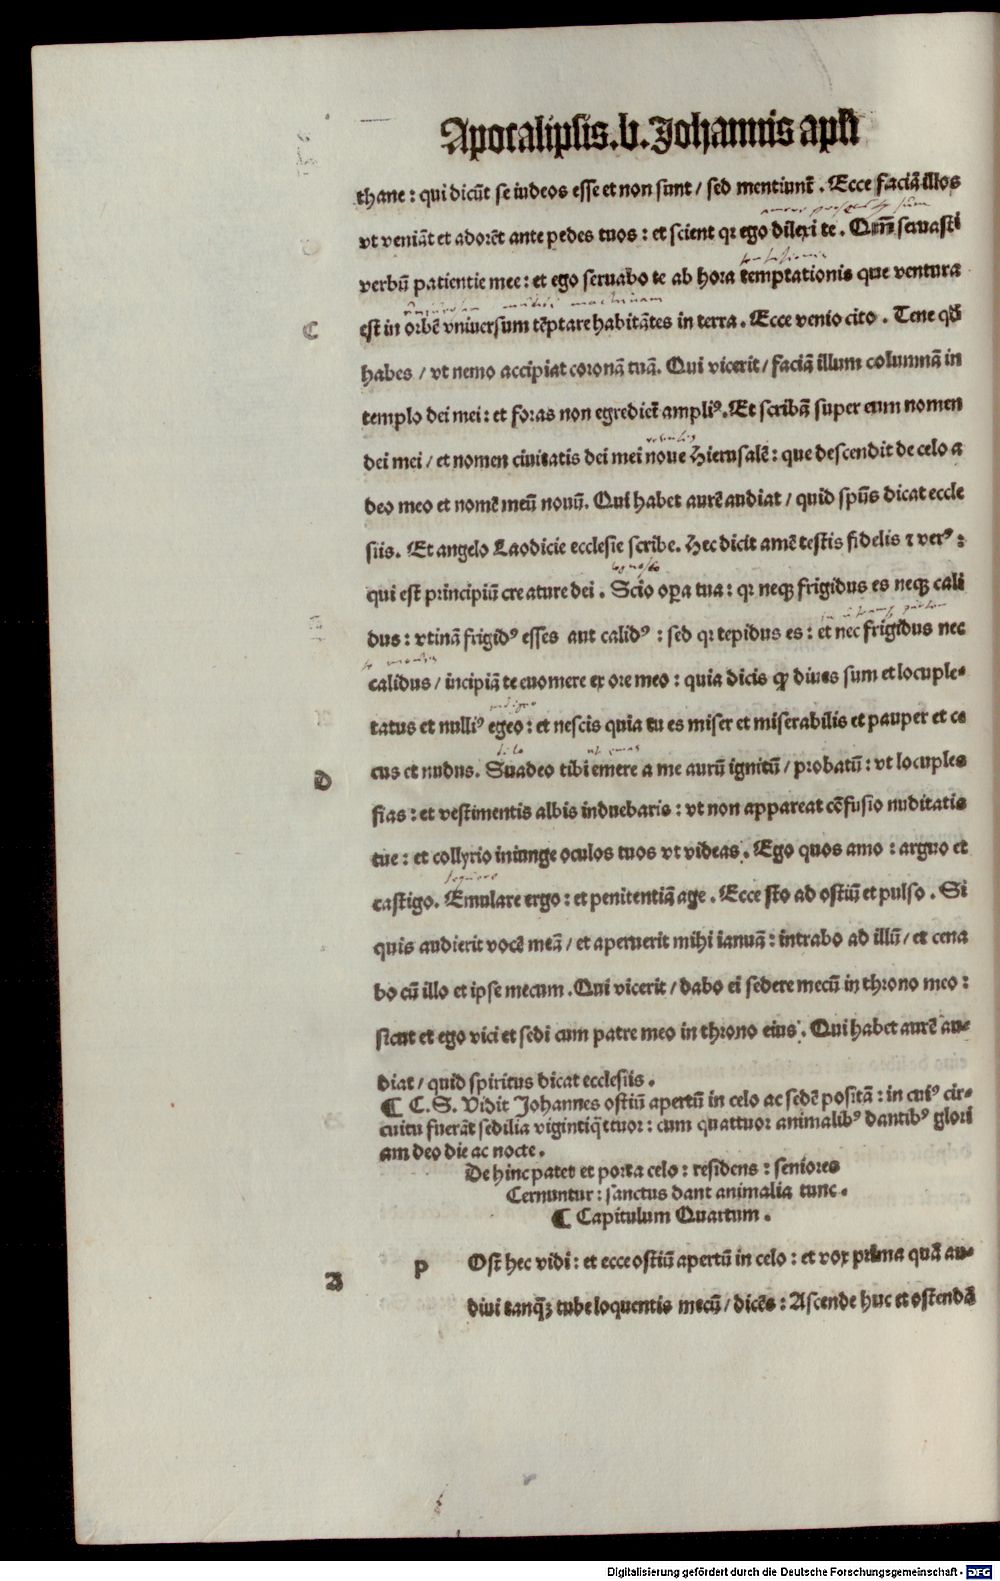 Apocalipsis .b. Johannis apłi
thane : qui dicūt se iudeos esse et non sunt / sed mentiunt̄ . Ecce faciā illos
vt veniāt et adorēt ante pedes tuos : et scient qꝛ ego dilexi te . Qm̄ seruasti
tentationis
verbū patientie mee : et ego seruabo te ab hora temptationis que ventura
uniuersam mundi machinam
C
est in orbē vniuersum tēptare habitātes in terra . Ecce venio cito . Tene qđ
habes / vt nemo accipiat coronā tuā . Qui vicerit / faciā illum columnā in
templo dei mei : et foras non egrediet̄ ampliꝰ . Et scribā super eum nomen
dei mei / et nomen ciuitatis dei mei noue Hierusalē : que descendit de celo a
deo meo et nomē meū nouū . Qui habet aurē audiat / quid spūs dicat eccle
siis . Et angelo Laodicie ecclesie scribe . Hec dicit amē testis fidelis ⁊ verꝰ :
cognosco
qui est principiū creature dei . Scio oꝑa tua : qꝛ neqꝫ frigidus es neqꝫ cali
dus : vtinā frigidꝰ esses aut calidꝰ : sed qꝛ tepidus es : et nec frigidus nec
calidus / incipiā te euomere ex ore meo : quia dicis ꝙ diues sum et locuple-
indigeo
tatus et nulliꝰ egeo : et nescis quia tu es miser et miserabilis et pauper et ce
ut emas
cus et nudus . Suadeo tibi emere a me aurū ignitū / probatū : vt locuples
D
fias : et vestimentis albis induebaris : vt non appareat cōfusio nuditatis
tue : et collyrio iniunge oculos tuos vt videas . Ego quos amo : arguo et
castigo . Emulare ergo : et penitentiā age . Ecce sto ad ostiū et pulso . Si
quis audierit vocē meā / et aperuerit mihi ianuā : intrabo ad illū / et cena
bo cū illo et ipse mecum . Qui vicerit / dabo ei sedere mecū in throno meo :
sicut et ego vici et sedi cum patre meo in throno eius . Qui habet aurē au-
diat / quid spiritus dicat ecclesiis .
¶ C. S. Vidit Johannes ostiū apertū in celo ac sedē positā : in cuiꝰ cir-
cuitu fuerāt sedilia vigintiq̄ttuor : cum quattuor animalibꝰ dantibꝰ glori
am deo die ac nocte .
De hinc patet et porta celo : residens : seniores
Cernuntur : sanctus dant animalia tunc .
¶ Capitulum Quartum .
A
p
Ost hec vidi : et ecce ostiū apertū in celo : et vox prima quā au-
diui tanq̄ꝫ tube loquentis mecū / dicēs : Ascende huc et ostendā
Digitalisierung gefördert durch die Deutsche Forschungsgemeinschaft - DFG